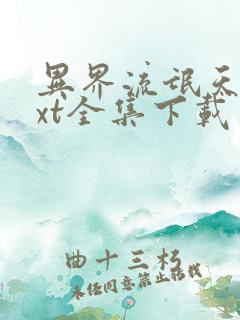 異界流氓天
xt全集下載
曲十三杉
未经同意禁止转载